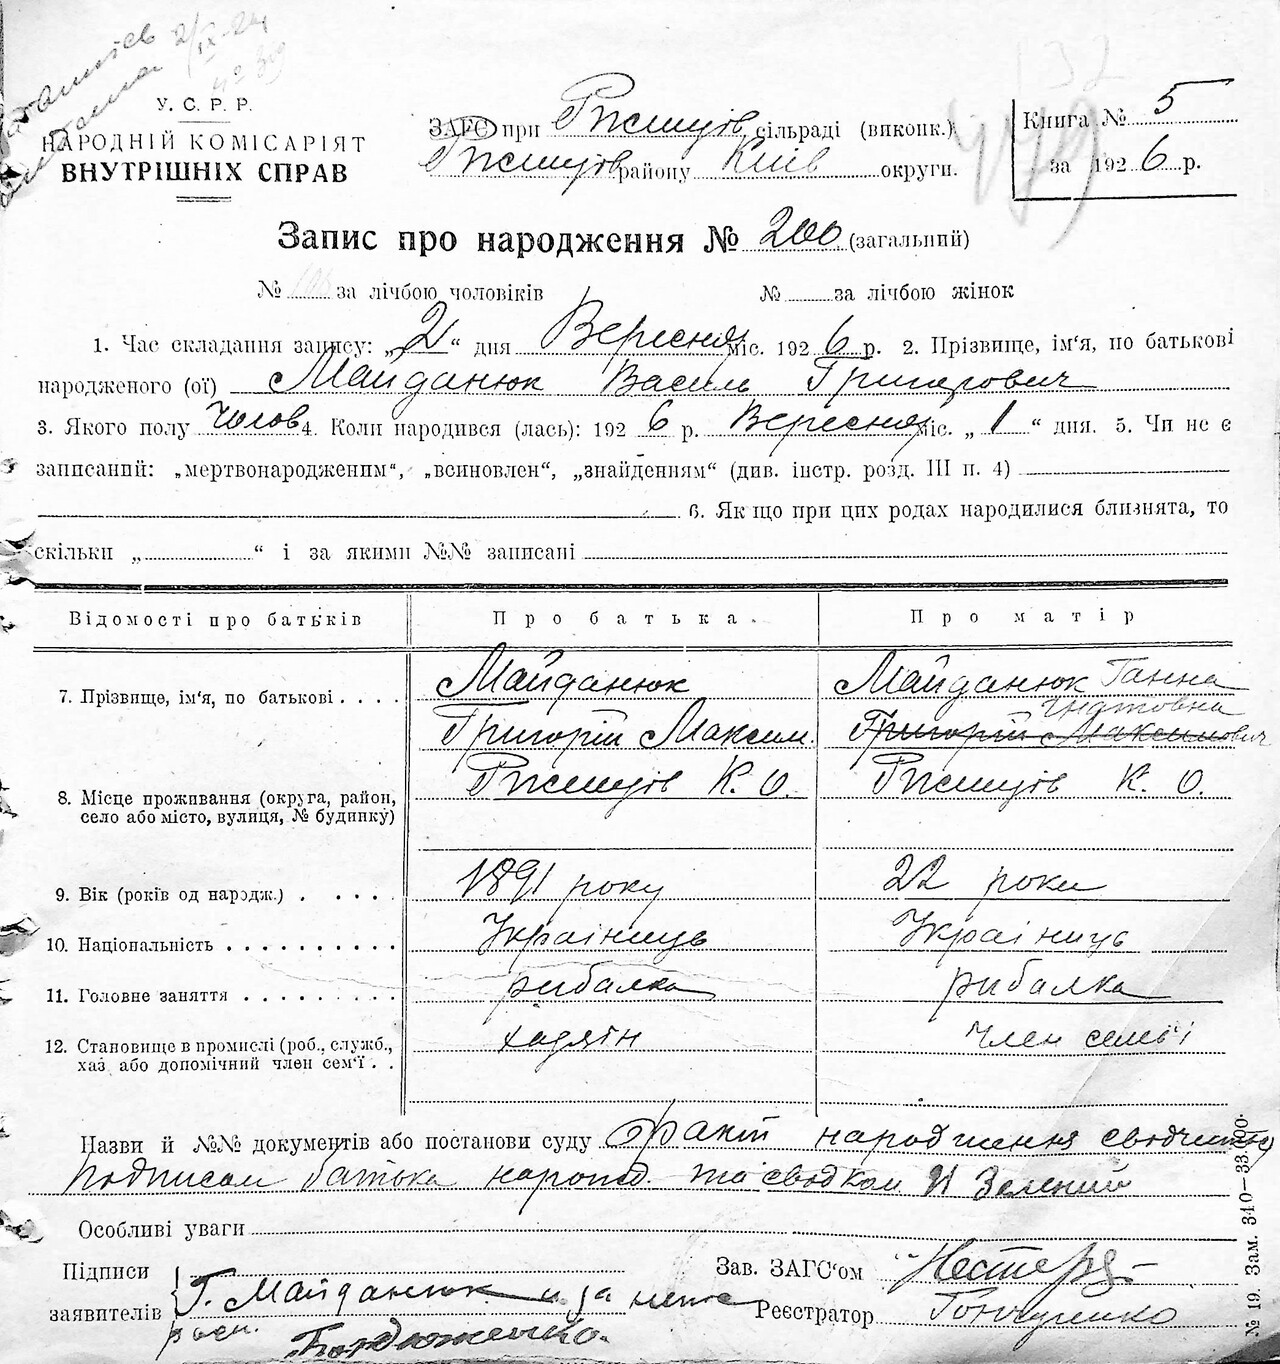 2/IX-24
У. С. Р. Р.
НАРОДНІЙ КОМІСАРІЯТ
ВНУТРІШНІХ СПРАВ
ЗАГС при Ржищів сільраді (виконк.)
Ржищів району Київ округи.
Книга № 5
за 1926 р.
Запис про народження № 200 (загальний)
№ за лічбою чоловіків № за лічбою жінок
1. Час складання запису: „2“ дня Вересня міс. 1926 р. 2. Прізвище, ім‘я, по батькові
народженого (ої) Майданюк Василь Григорович
3. Якого полу Чолов 4. Коли народився (лась): 1926 р. Вересня міс. „1“ дня. 5. Чи не є
записаний: „мертвонародженим“, „всиновлен“, „знайденням“ (див. інстр. розд. III п. 4)
6. Якщо при цих родах народилися близнята, то
скільки „ “ і за якими №№ записані
Відомості про батьків Про батька. Про матір
7. Прізвище, ім‘я, по батькові Майданюк Майданюк Ганна
Григорій Максим. Григорій Максимович
8. Місце проживання (округа, район, Ржищів К. О. Ржищів К. О.
село або місто, вулиця, № будинку)
9. Вік (років од народж.) 1891 року 22 роки
10. Національність Україниць Україниць
11. Головне заняття рибалка рибалка
12. Становище в промислі (роб., служб., хадяін Член семьі
хаз. або допомічний член сем‘ї
Назви й №№ документів або постанови суду Факт народження
Подписом батька народ. та сводком И Зелений
Особливі уваги
Підписи Зав. ЗАГС‘ом
заявителів Г. Майданюк и за него Реєстратор Гончаренко
расп.
Бондюженко.
№ 19. Зам. 340—33.000.